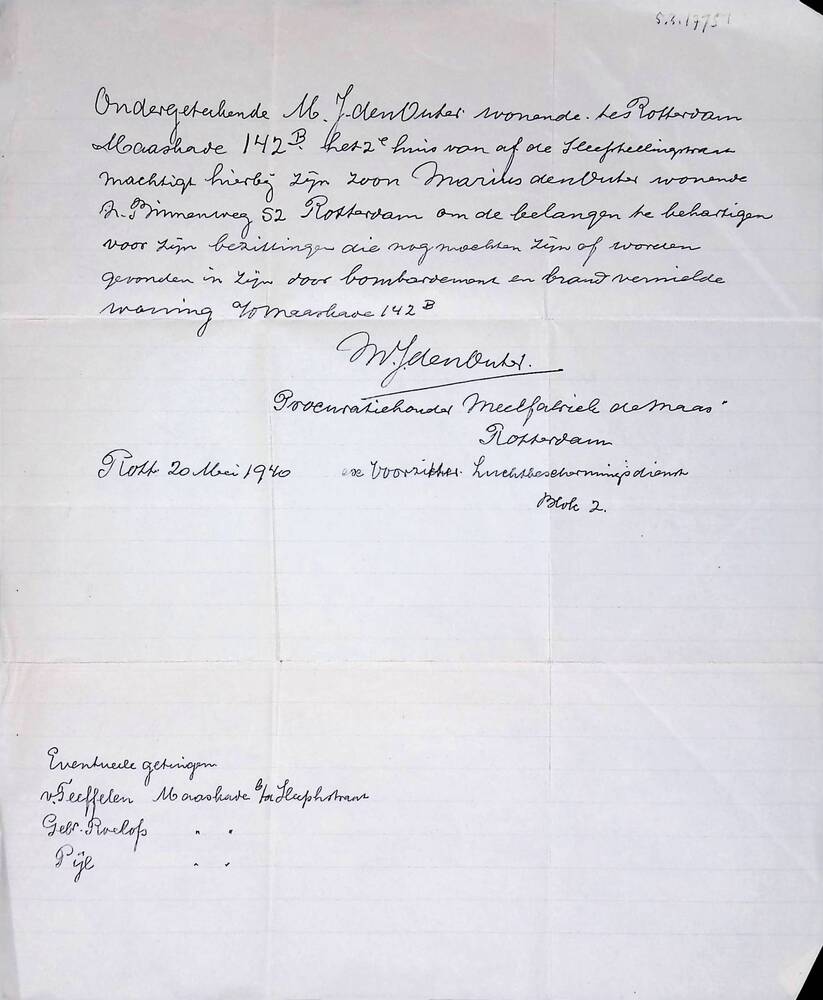 Ondergetekende M. J. den Outer wonende te Rotterdam
Maashave 142 B. het 2e huis van af de
machtigt hierbij zijn zoon Marius den Outer wonende
N. Binnenweg 52 Rotterdam om de belangen te behartigen
voor zijn bezittingen die nog mochten zijn of worden
gevonden in zijn door bombardement en brand vernielde
woning a/d Maashave 142 B
M. J. den Outer.
Procuratiehouder Meelfabriek de Maas"
Rotterdam
Rott. 20 Mei 1940 Voorzitter Luchtbeschermingsdienst
Blok 2.
Eventueele getuigen
v. Teeffelen Maashave
Gebr. Roelofs " "
Pijl " "